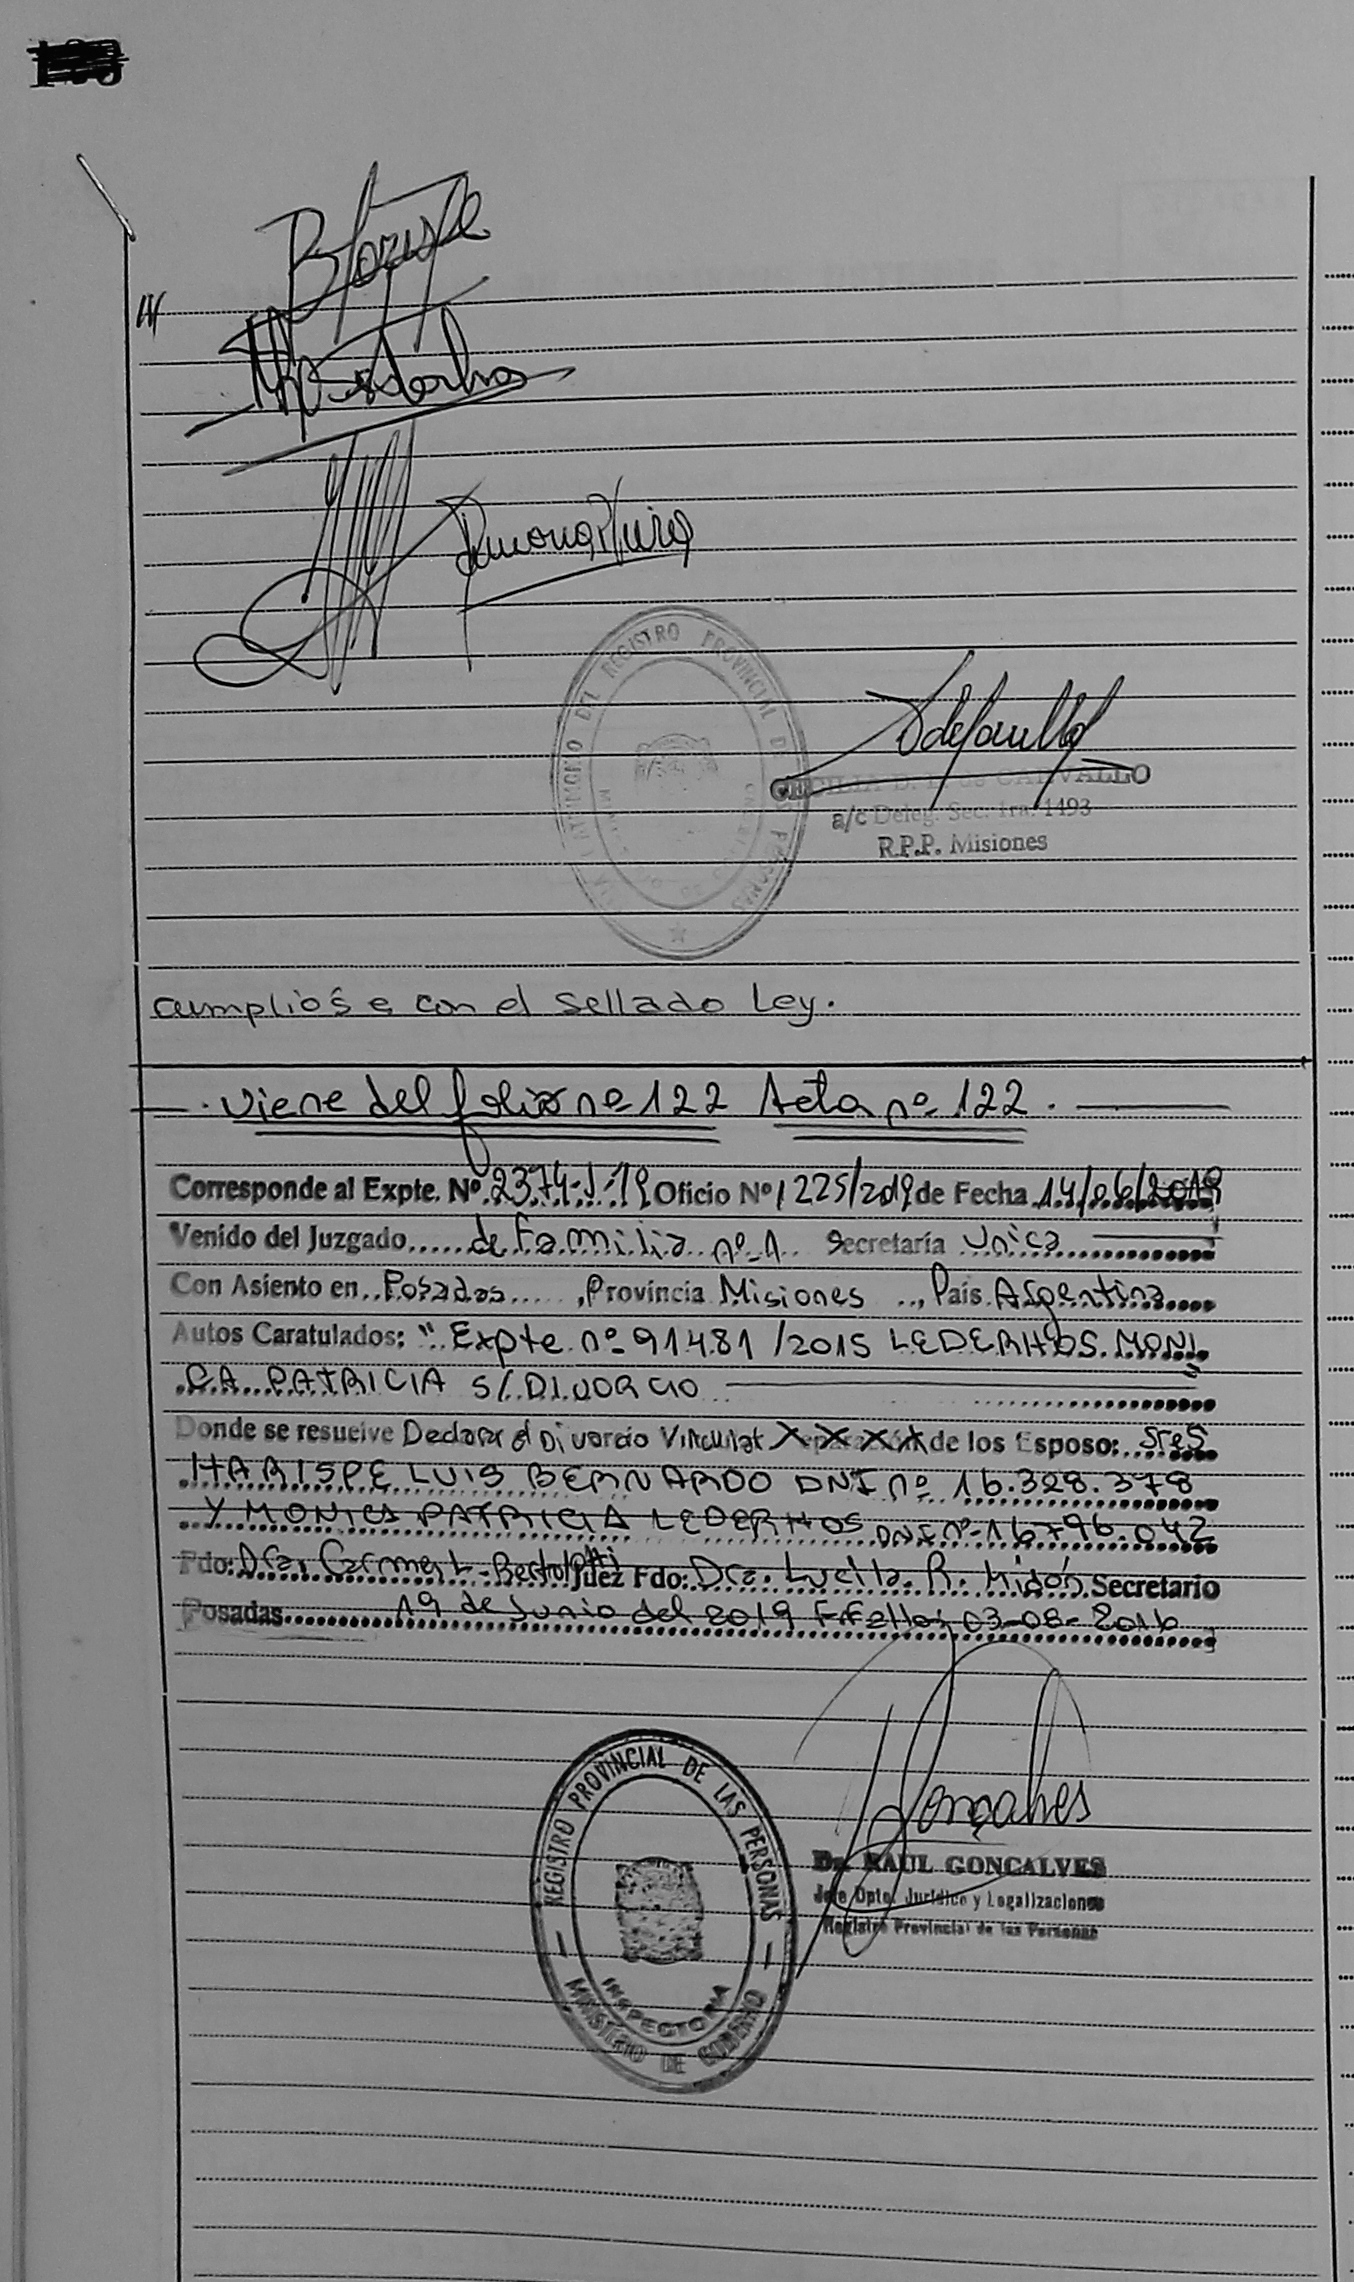 cumpliós e con el sellado Ley.
REGISTRO PROVINCIAL DE
CECILIA D. de CARVALLO
a/c Deleg. Sec. 1ra. 1493
R.P.P. Misiones
. Viene del folio nº 122 Acta nº 122.
Corresponde al Expte. Nº 2374-J-19 Oficio Nº 1225/2019 de Fecha 14/06/2019
Venido del Juzgado de Familia nº 1 Secretaría Unica
Con Asiento en Posadas, Provincia Misiones, País Argentina
Autos Caratulados: "Expte nº 91481/2015 LEDERHOS MONI
CA PATRICIA S/DIVORCIO
Donde se resuelve Declarar el Divorcio Vincular XXXX de los Esposo: Sres
HARISPE LUIS BERNARDO DNI nº 16.328.378
Y MONICA PATRICIA LEDERHOS DNI nº 16796.042
Fdo: Dra. Carmen L. Juez Fdo: Dra. Lucila R. Midón Secretario
Posadas 19 de Junio del 2019 F.Fallo: 03-08-2016
REGISTRO PROVINCIAL DE LAS PERSONAS
INSPECTORIA
MINISTERIO DE GOBIERNO
Goncalves
Dr. RAUL GONCALVES
Jefe Dpto. Jurídico y Legalizaciones
Registro Provincial de las Personas